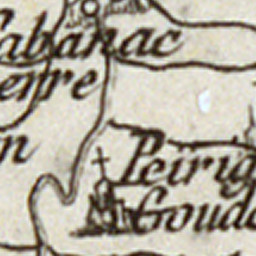 Cabanac
erre
n
Peirig
Goud